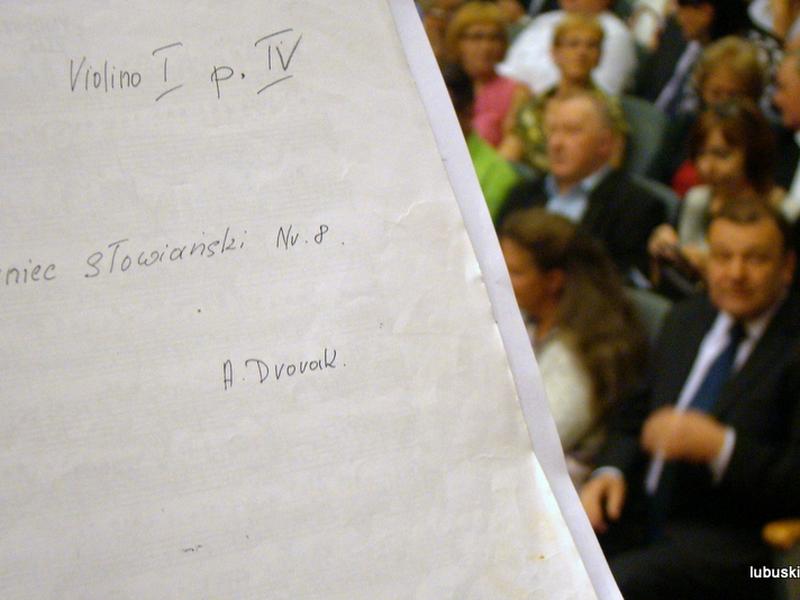 Violino I p. IV
niec słowiański Nr. 8.
A. Dvorak.
lubuski